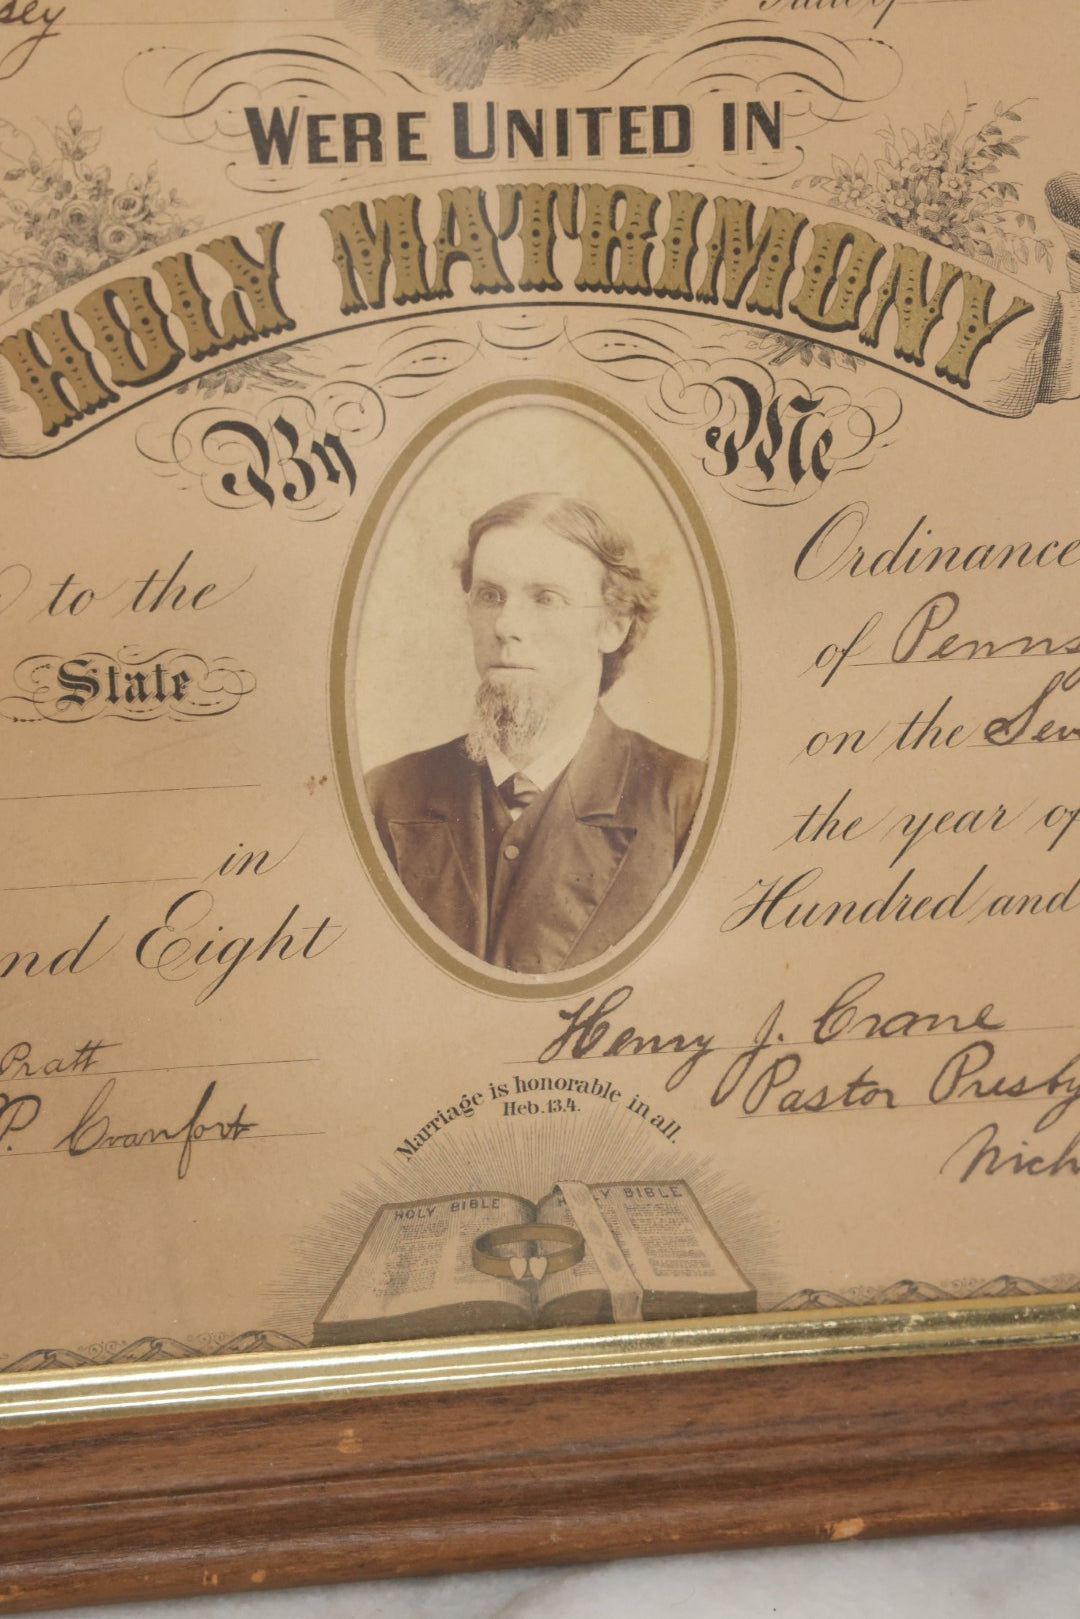 sey State of
WERE UNITED IN
HOLY MATRIMONY
By Me
to the Ordinance
State of Penns
on the Sev
the year of
in Hundred and
nd Eight
Henry J. Crane
Pratt Pastor Presby
P. Cranfort Nich
Marriage is honorable in all.
Heb. 13.4.
HOLY BIBLE H LY BIBLE